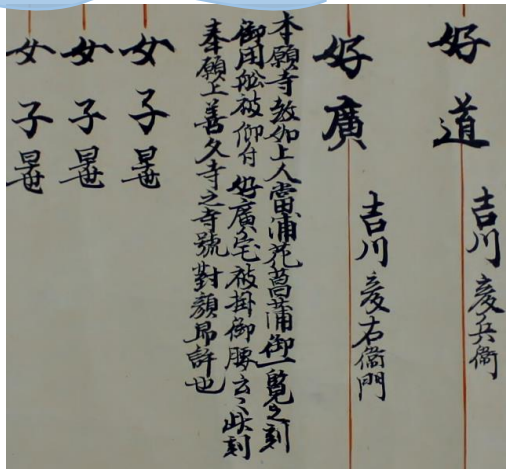 好道
吉川彦兵衛
好廣
吉川彦右衛門
本願寺教如上人當浦花菖蒲御一覧之刻
御用舩被仰付 好廣宅被掛御腰云々此刻
奉願上善久寺之寺號對顔昻許也
女子 早世
女子 早世
女子 早世